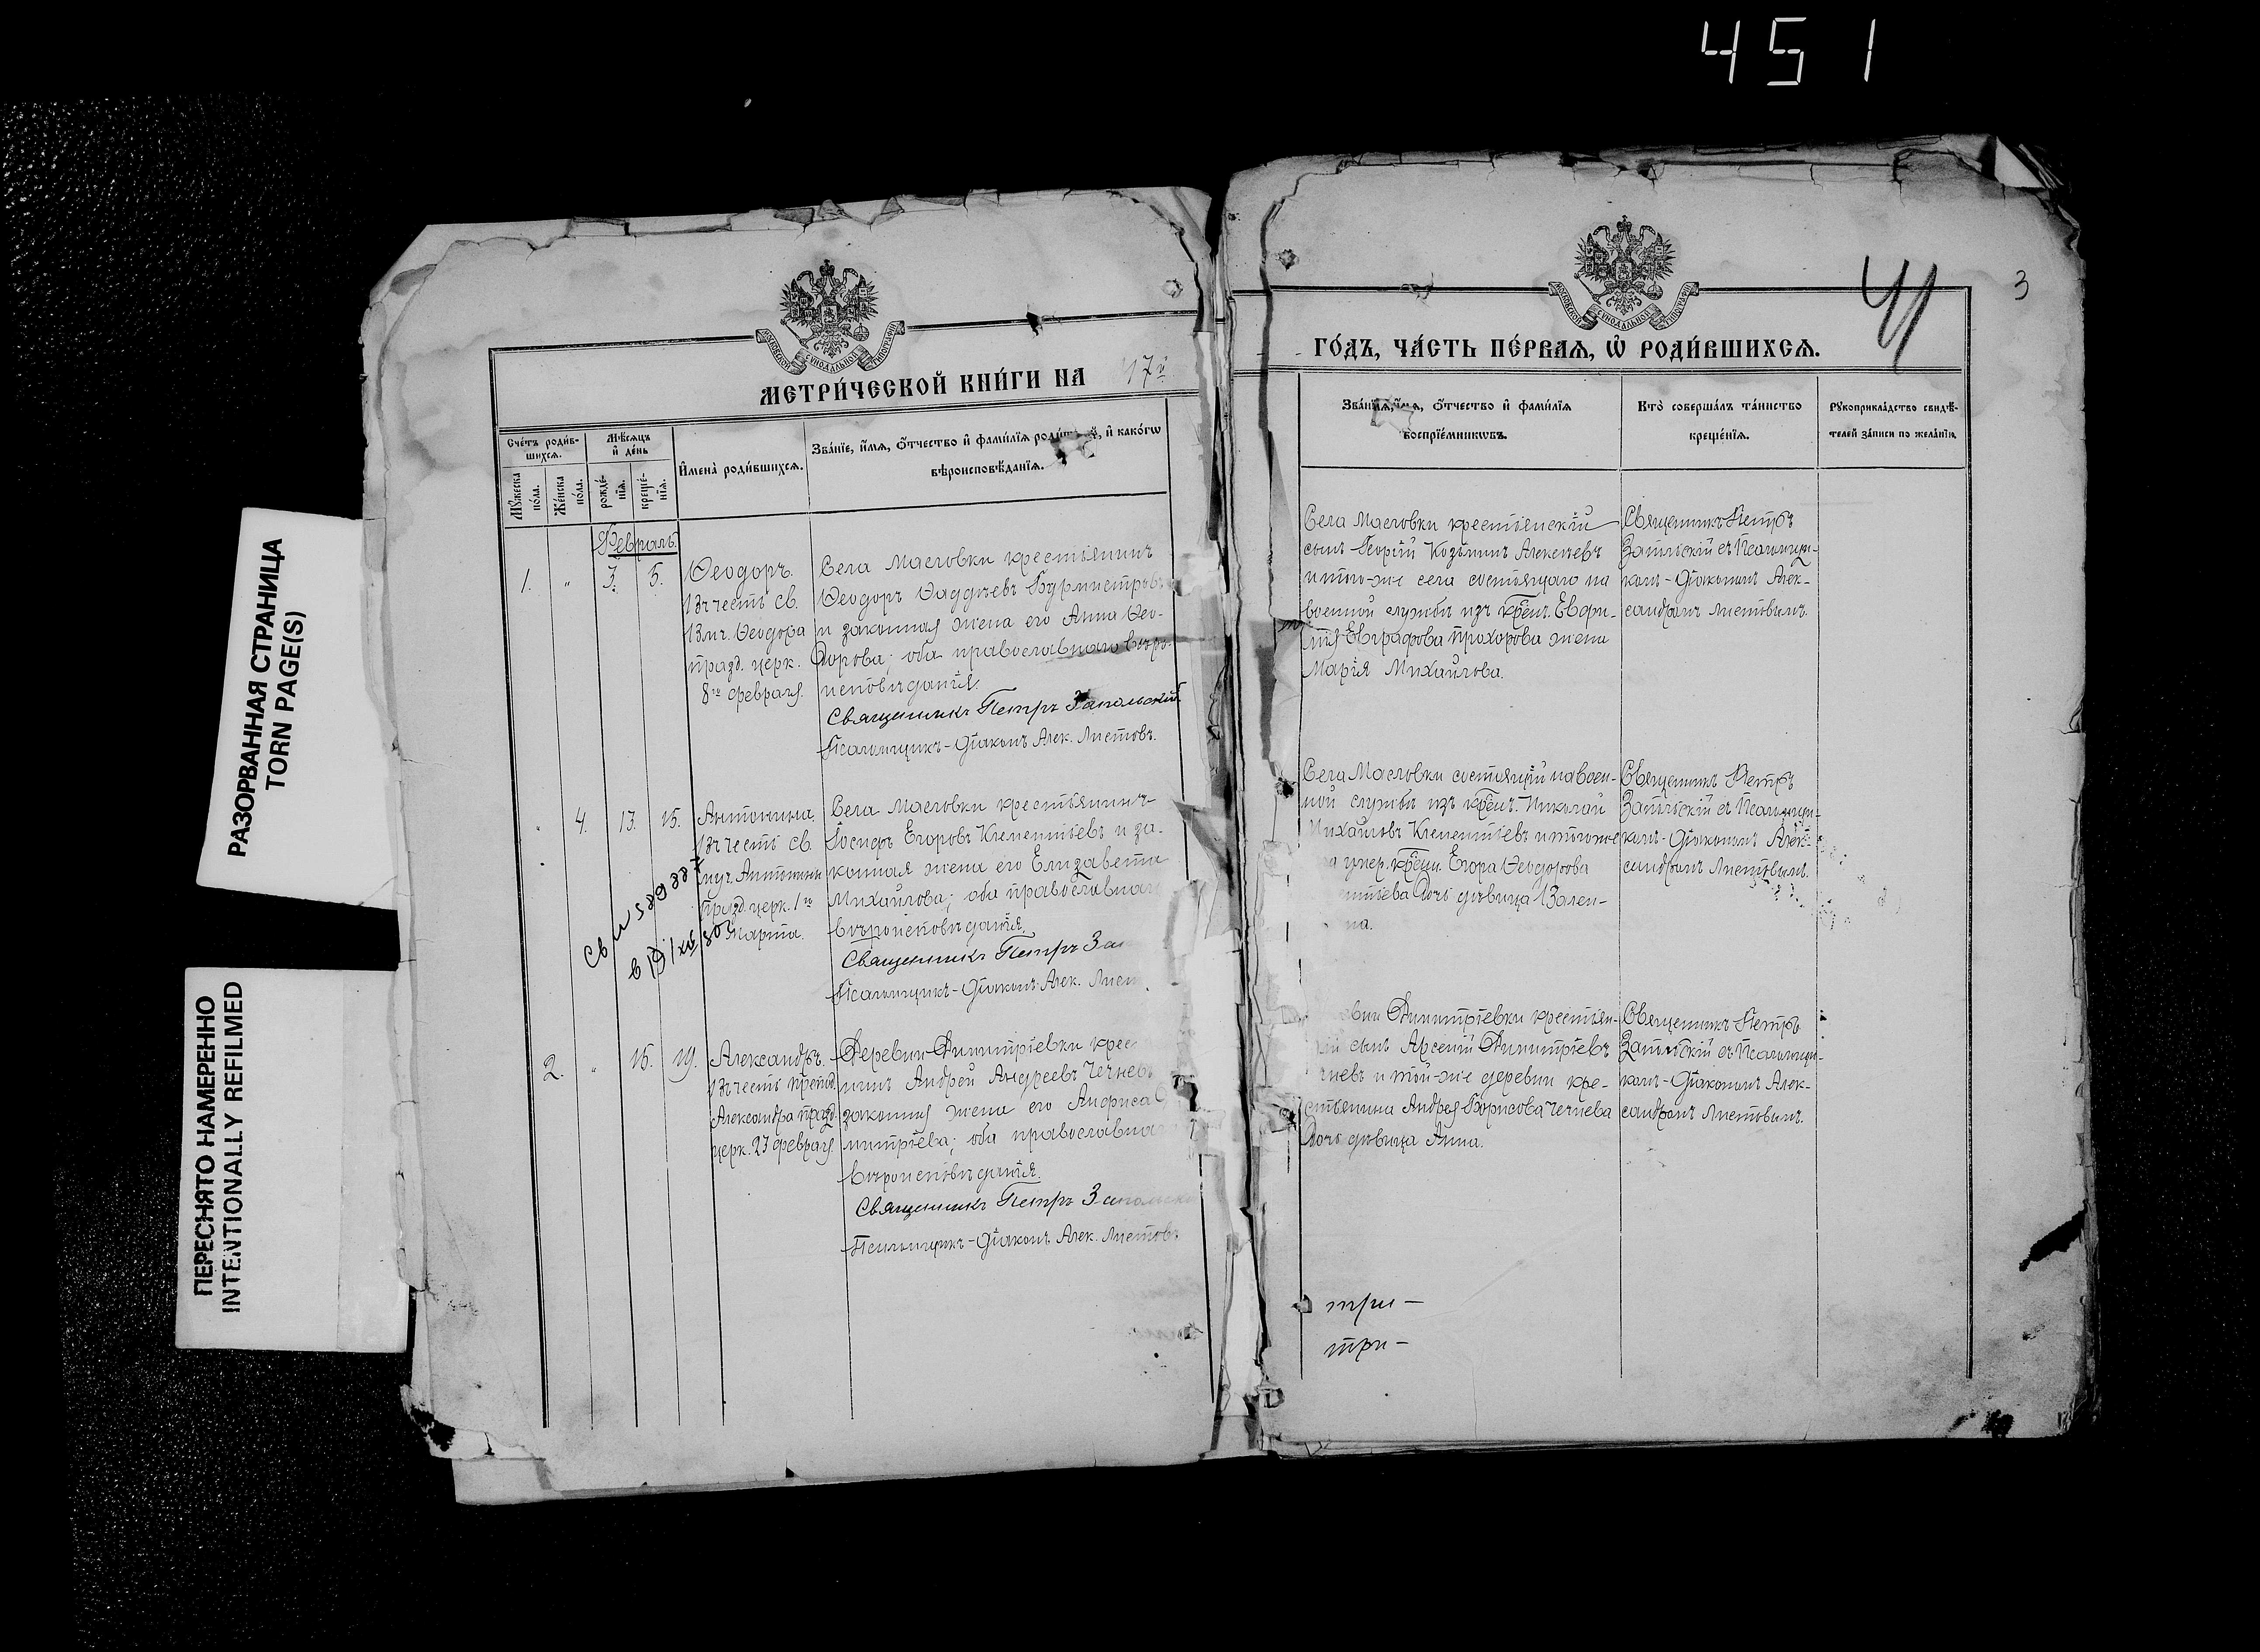 451
РАЗОРВАННАЯ СТРАНИЦА
TORN PAGE(S)
ПЕРЕСНЯТО НАМЕРЕННО
INTENTIONALLY REFILMED
МОСКОВСКОЙ СѴНОДАЛЬНОЙ ТИПОГРАФІИ
МЕТРИ́ЧЕСКОЙ КНИ́ГИ НА 17й
Сче́тъ роди́в-
шихсѧ.
Мѣ́сѧцъ
и҆ де́нь
Мꙋ́жеска
по́ла.
Же́нска
по́ла.
рожде́-
нїѧ.
креще́-
нїѧ.
И҆мена̀ роди́вшихсѧ.
Зва́нїе, и҆́мѧ, ѻ҆́тчество и҆ фами́лїѧ роди́, и҆ како́гѡ
вѣроисповѣ́данїѧ.
Февраль.
1. " 3. 5.
Ѳеодоръ.
Въ честь св.
Вмч. Ѳеодора
празд. церк.
8го февраля.
Села Масловки крестьянинъ
Ѳеодоръ Ѳаддѣевъ Бурмистровъ
и законная жена его Анна Ѳео-
дорова; оба православнаго вѣро-
исповѣданія.
Священникъ Петръ Запольскій
Псаломщикъ-Діаконъ Алек. Листовъ.
" 4. 13. 15.
Антонина.
Въ честь св.
муч. Антонины
празд. церк. 1го
Марта.
Села Масловки крестьянинъ
Іосифъ Егоровъ Клементіевъ и за-
конная жена его Елизавета
Михайлова; оба православнаго
вѣроисповѣданія.
Священникъ Петръ За
Псаломщикъ-Діаконъ Алек. Лист
2. " 15. 19.
Александръ.
Въ честь препод.
Александра празд.
церк. 23 февраля.
Деревни Димитріевки крес
нинъ Андрей Андреевъ Чечневъ
законная жена его Анфиса
митріева; оба православна
вѣроисповѣданія.
Священникъ Петръ Запольскі
Псаломщикъ-Діаконъ Алек. Листовъ
МОСКОВСКОЙ СѴНОДАЛЬНОЙ ТИПОГРАФІИ
3
ГО́ДЪ, ЧА́СТЬ ПЕ́РВАѦ, Ѽ РОДИ́ВШИХСѦ.
Зва́нїе, и҆́мѧ, ѻ҆́тчество и҆ фами́лїѧ
воспрїе́мникѡвъ.
Кто̀ соверша́лъ та́инство
креще́нїѧ.
Рꙋкоприкла́дство свидѣ́-
телей за́писи по жела́нїю.
Села Масловки крестьянскій
сынъ Георгій Козьминъ Алексѣевъ
и того-же села состоящаго на
военной службѣ изъ крест. Евфи-
мія Евграфова Прохорова жена
Марія Михайлова.
Священникъ Петръ
Запольскій съ Псаломщи-
комъ-Діакономъ Алек-
сандромъ Листовымъ.
Села Масловки состоящій на воен-
ной службѣ изъ крест. Николай
Михайловъ Клементіевъ и того-же
умер. крест. Егора Ѳеодорова
нтіева дочь дѣвица Вален-
на.
Священникъ Петръ
Запольскій съ Псаломщи-
комъ-Діакономъ Алек-
сандромъ Листовымъ.
вни Димитріевки крестьян-
сынъ Арсеній Димитріевъ
чневъ и той-же деревни кре-
стьянина Андрея Борисова Чечнева
дочь дѣвица Анна.
Священникъ Петръ
Запольскій съ Псаломщи-
комъ-Діакономъ Алек-
сандромъ Листовымъ.
три —
три —